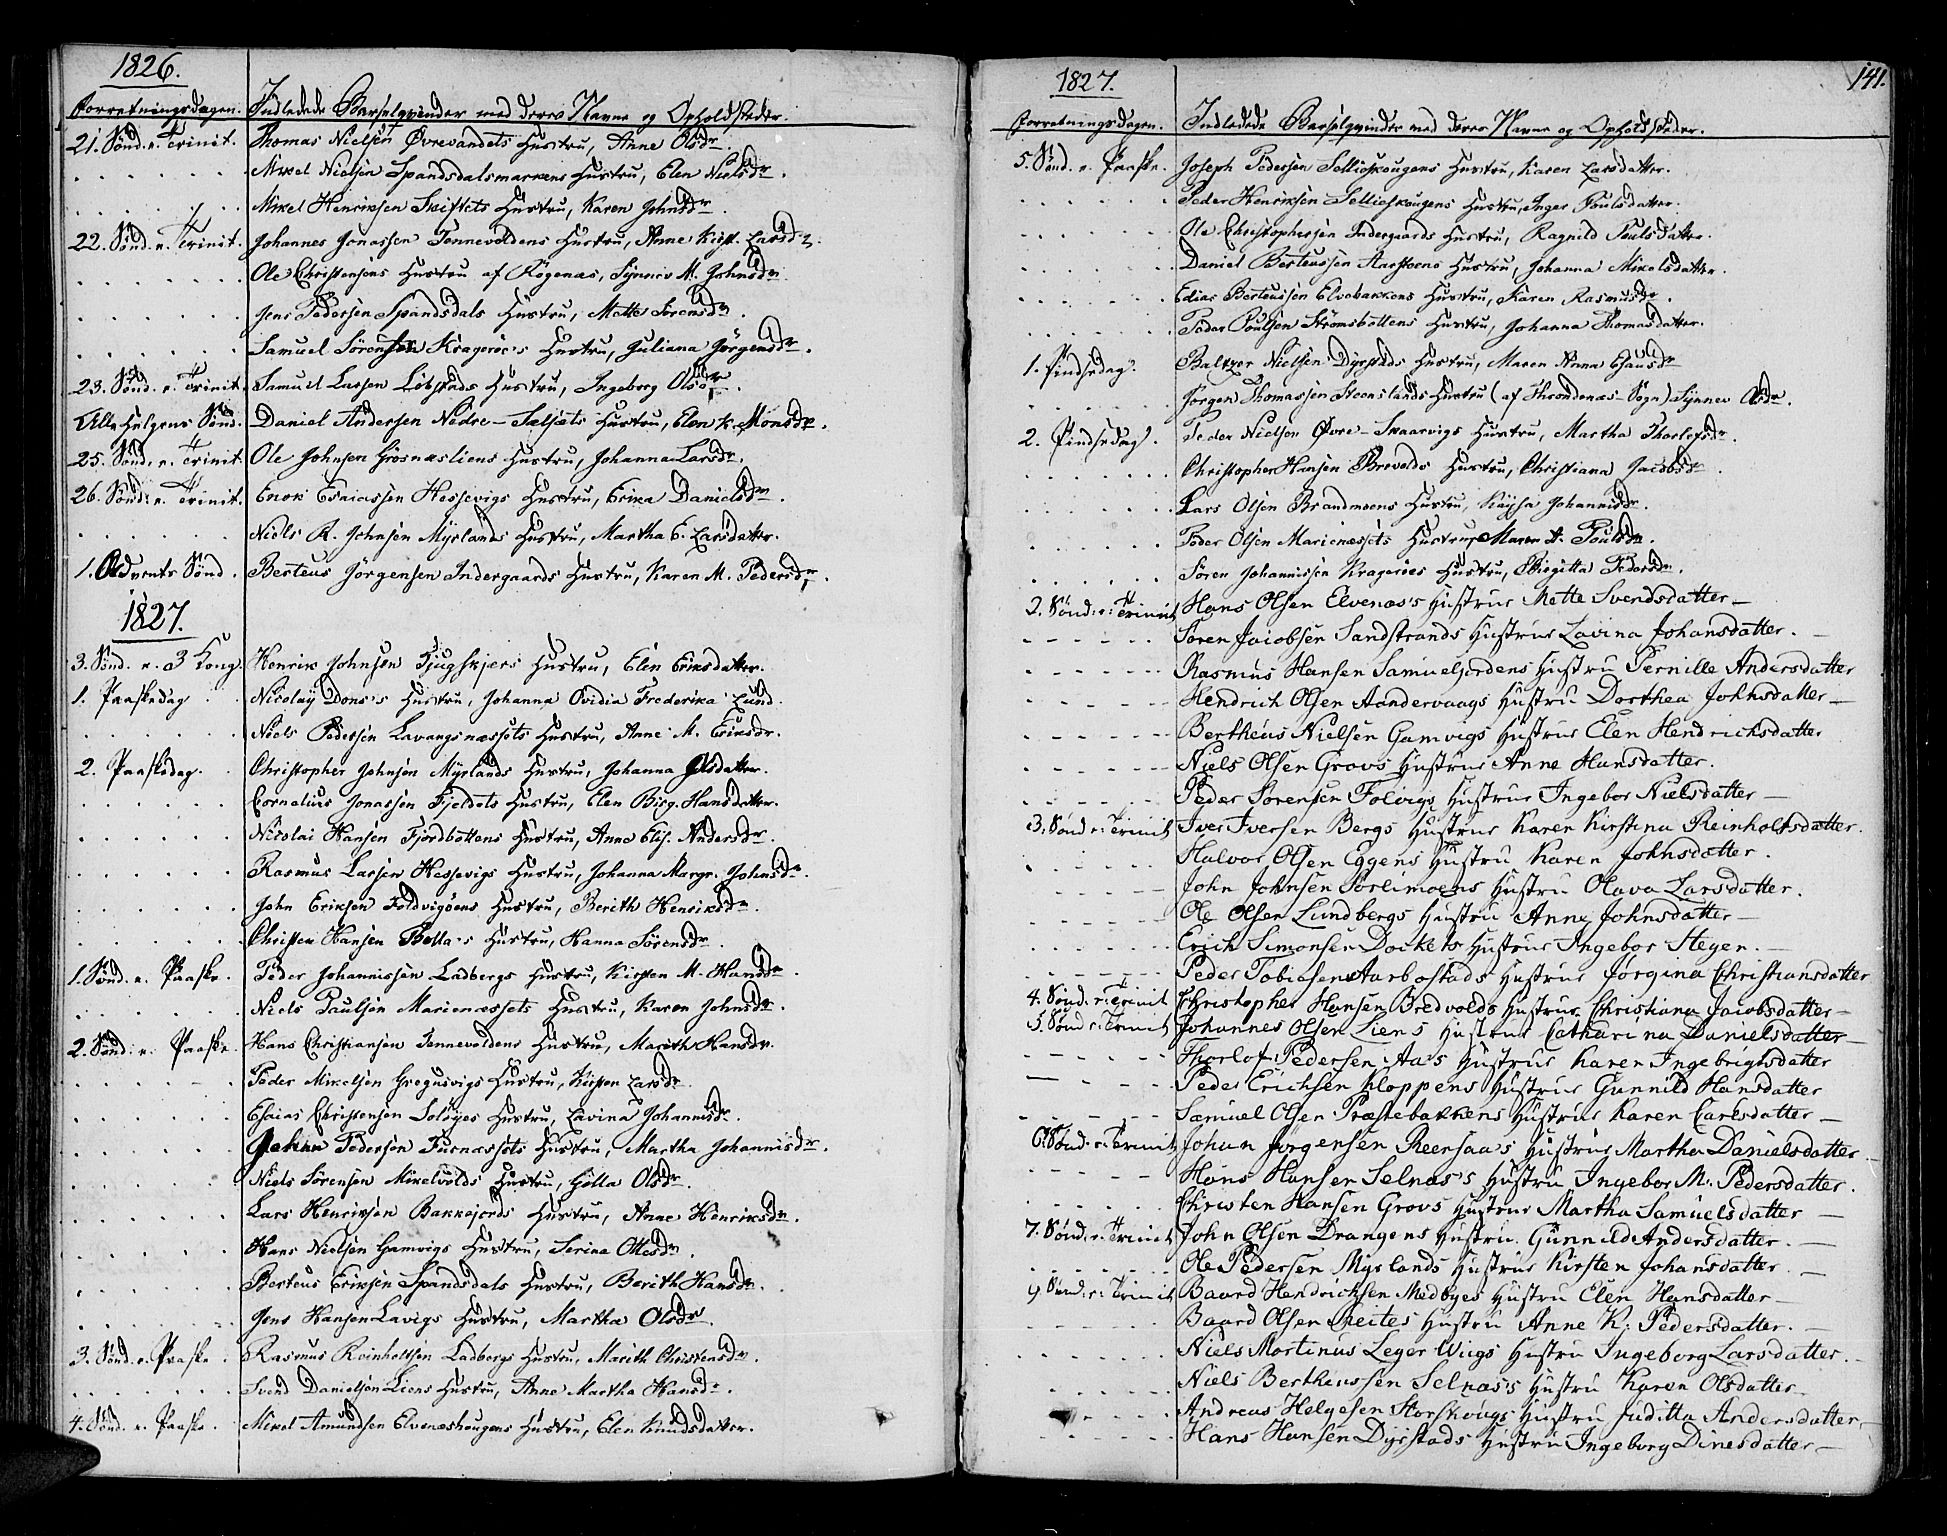 1826.
Forretningsdagen. Indledede Barselqvinder med deres Navne og Opholdsteder.
21. Sønd. e. Trinit. Thomas Nielsen Øvrevandets Hustru, Anne Olsdr.
Mikel Nielsen Spandsdalsmarkens Hustru, Elen Nielsdr.
Mikel Henriksen Skiftets Hustru, Karen Johnsdr.
22. Sønd. e. Trinit. Johannes Jonassen Tennevoldens Hustru, Anne Kirst. Larsdr.
Ole Christensens Hustru af Røgenæs, Synnev M. Johnsdr.
Jens Pedersen Spandsdals Hustru, Mette Sørensdr.
Samuel Sørensen Kragerøe's Hustru, Juliana Jørgensdr.
23. Sønd. e. Trinit. Samuel Larsen Løbstads Hustru, Ingeborg Olsdr.
Alle Helgens Sønd. Daniel Andersen Nedre-Sæljets Hustru, Elen K. Monsdr.
25. Sønd. e. Trinit. Ole Johnsen Grøsnæsliens Hustru, Johanna Larsdr.
26. Sønd. e. Trinit. Enok Esaiassen Hessevigs Hustru, Erika Danielsdr.
Niels R. Johnsen Myrlands Hustru, Martha E. Larsdatter.
1. Advents Sønd. Berteus Jörgensen Indergaards Hustru, Karen M. Pedersdr.
1827.
3. Sønd. e. 3 Kong. Henrik Johnsen Tjugskjers Hustru, Elen Eriksdatter.
1. Paaskedag Nicolay Dons's Hustru, Johanna Ovidia Frederika Lund.
Niels Pedersen Lavangsnæssets Hustru, Anne M. Eriksdr.
2. Paaskedag. Christopher Johnsen Myrlands Hustru, Johanna Olsdatter.
Cornelius Jonassen Fjeldets Hustru, Elen Birg. Hansdatter.
Nicolai Hansen Fjordbottens Hustru, Anne Elis. Andersdr.
Rasmus Larsen Hessevigs Hustru, Johanna Margr. Johnsdr.
John Eriksen Foldvigøens Hustru, Berith Henriksdr.
Christen Hansen Bolla's Hustru, Hanna Sørensdr.
1. Sønd. e. Paaske. Peder Johannissen Ladbergs Hustru, Kirsten M. Hansdr.
Niels Paulsen Marienæssets Hustru, Karen Johnsdr.
2. Sønd. e. Paaske. Hans Christiansen Tennevoldens Hustru, Marith Hansdr.
Peder Mikelsen Gregusvigs Hustru, Kirsten Larsdr.
Esaias Christensen Soløyes Hustru, Lavina Johannisdr.
Johan Pedersen Furnæssets Hustru, Martha Johannisdr.
Niels Sørensen Mikelvolds Hustru, Gølla Olsdr.
Lars Henriksen Bakkejords Hustru, Anne Henriksdr.
Hans Nielsen Gamvigs Hustru, Serina Ottesdr.
Berteus Eriksen Spandsdals Hustru, Berith Hansdr.
Jens Hansen Lavigs Hustru, Martha Olsdr.
3. Sønd. e. Paaske. Rasmus Reinholtsen Ladbergs Hustru, Marith Christensdr.
Svend Danielsen Liens Hustru, Anne Martha Hansdr.
4. Sønd. e. Paaske. Mikel Amundsen Elvenæshaugens Hustru, Elen Knudsdatter.
1827.
141.
Forretningsdagen. Indledede Barselqvinder med deres Navne og Opholdssteder.
5. Sønd. e. Paaske. Joseph Pedersen Selliskougens Hustru, Karen Larsdatter.
Peder Henriksen Selliaskougens Hustru, Inger Poulsdatter.
Ole Christophersen Indergaards Hustru, Ragnild Poulsdatter.
Daniel Berteussen Aarstens Hustru, Johanna Mikelsdatter.
Edias Berteussen Elvebakkens Hustru, Karen Rasmusdr.
Peder Poulsen Strømsbottens Hustru, Johanna Thomasdatter.
1. Pindsedag. Baltzer Nielsen Dyrstads Hustru, Maren Anna Esaiasdr
Jørgen Thomassen Steenslands Hustru (af Throndenæs-Sogn) Synnev Olsdr.
2. Pindsedag. Peder Nielsen Øvre-Skaarvigs Hustru, Martha Thorlefsdr.
Christopher Hansen Brevolds Hustru, Christiana Jacobsdr.
Lars Olsen Brandmoens Hustru, Kaysa Johannisdr.
Peder Olsen Marienæssets Hustru, Maren A. Poulsdr.
Søren Johannissen Kragerøes Hustru, Birgitta Pedersdr.
2. Sønd: e: Trinit Hans Olsen Elvenæs's Hustrue Mette Svendsdatter
Søren Jacobsen Sandstrands Hustrue Lavina Johansdatter.
Rasmus Hansen Samueljordens Hustru Pernille Andersdatter
Hendrich Olsen Aandervaags Hustru Dorthea Johnsdatter
Bertheus Nielsen Gamvigs Hustrue Elen Hendrichsdatter
Niels Olsen Grovs Hustrue Anne Hansdatter.
Peder Sørensen Folvigs Hustrue Ingebor Nielsdatter
3. Sønd e: Trinit Iver Iversen Bergs Hustrue Karen Kirstina Reinholtsdatter.
Halvor Olsen Eggens Hustru Karen Johnsdatter.
John Johnsen Sørlimoens Hustru Olava Larsdatter.
Ole Olsen Lundbergs Hustru Anne Johnsdatter
Erich Simonsen Dockets Hustrue Ingebor Steger.
Peder Tobiasen Aarbostads Hustrue Jørgina Christiansdatter
4. Sønd. e: Trinit Christopher Hansen Bredvolds Hustrue Christiana Jacobsdatter
5. Sønd e: Trinit Johannes Olsen Liens Hustrue Catharina Danielsdatter
Thorlof Pedersen Aa's Hustrue Karen Ingebrigtsdatter
Peder Erichsen Kloppens Hustrue Gunnild Hansdatter
Samuel Olsen Præstebakkens Hustrue Karen Larsdatter
6. Sønd: e: Trinit Johan Jørgensen Reensaa's Hustrue Martha Danielsdatter
Hans Hansen Selnæs's Hustru Ingebor M: Pedersdatter.
Christen Hansen Grovs Hustrue Martha Samuelsdatter
7. Sønd: e: Trinit John Olsen Drangens Hustru. Gunnild Andersdatter.
Ole Pedersen Myrlands Hustrue Kirsten Johansdatter.
9 Sønd: e: Trinit Baard Hendrichsen Medbyes Hustru Elen Hansdatter
Baard Olsen Reites Hustru Anne K: Pedersdatter.
Niels Mortinus Leger Wiigs Hustru Ingeborg Larsdatter.
Niels Bertheussen Selnæs's Hustru Karen Olsdatter
Andreas Helgesen Storskougs Hustru Juditta Andersdatter
Hans Hansen Dyrstads Hustru Ingeborg Dinesdatter